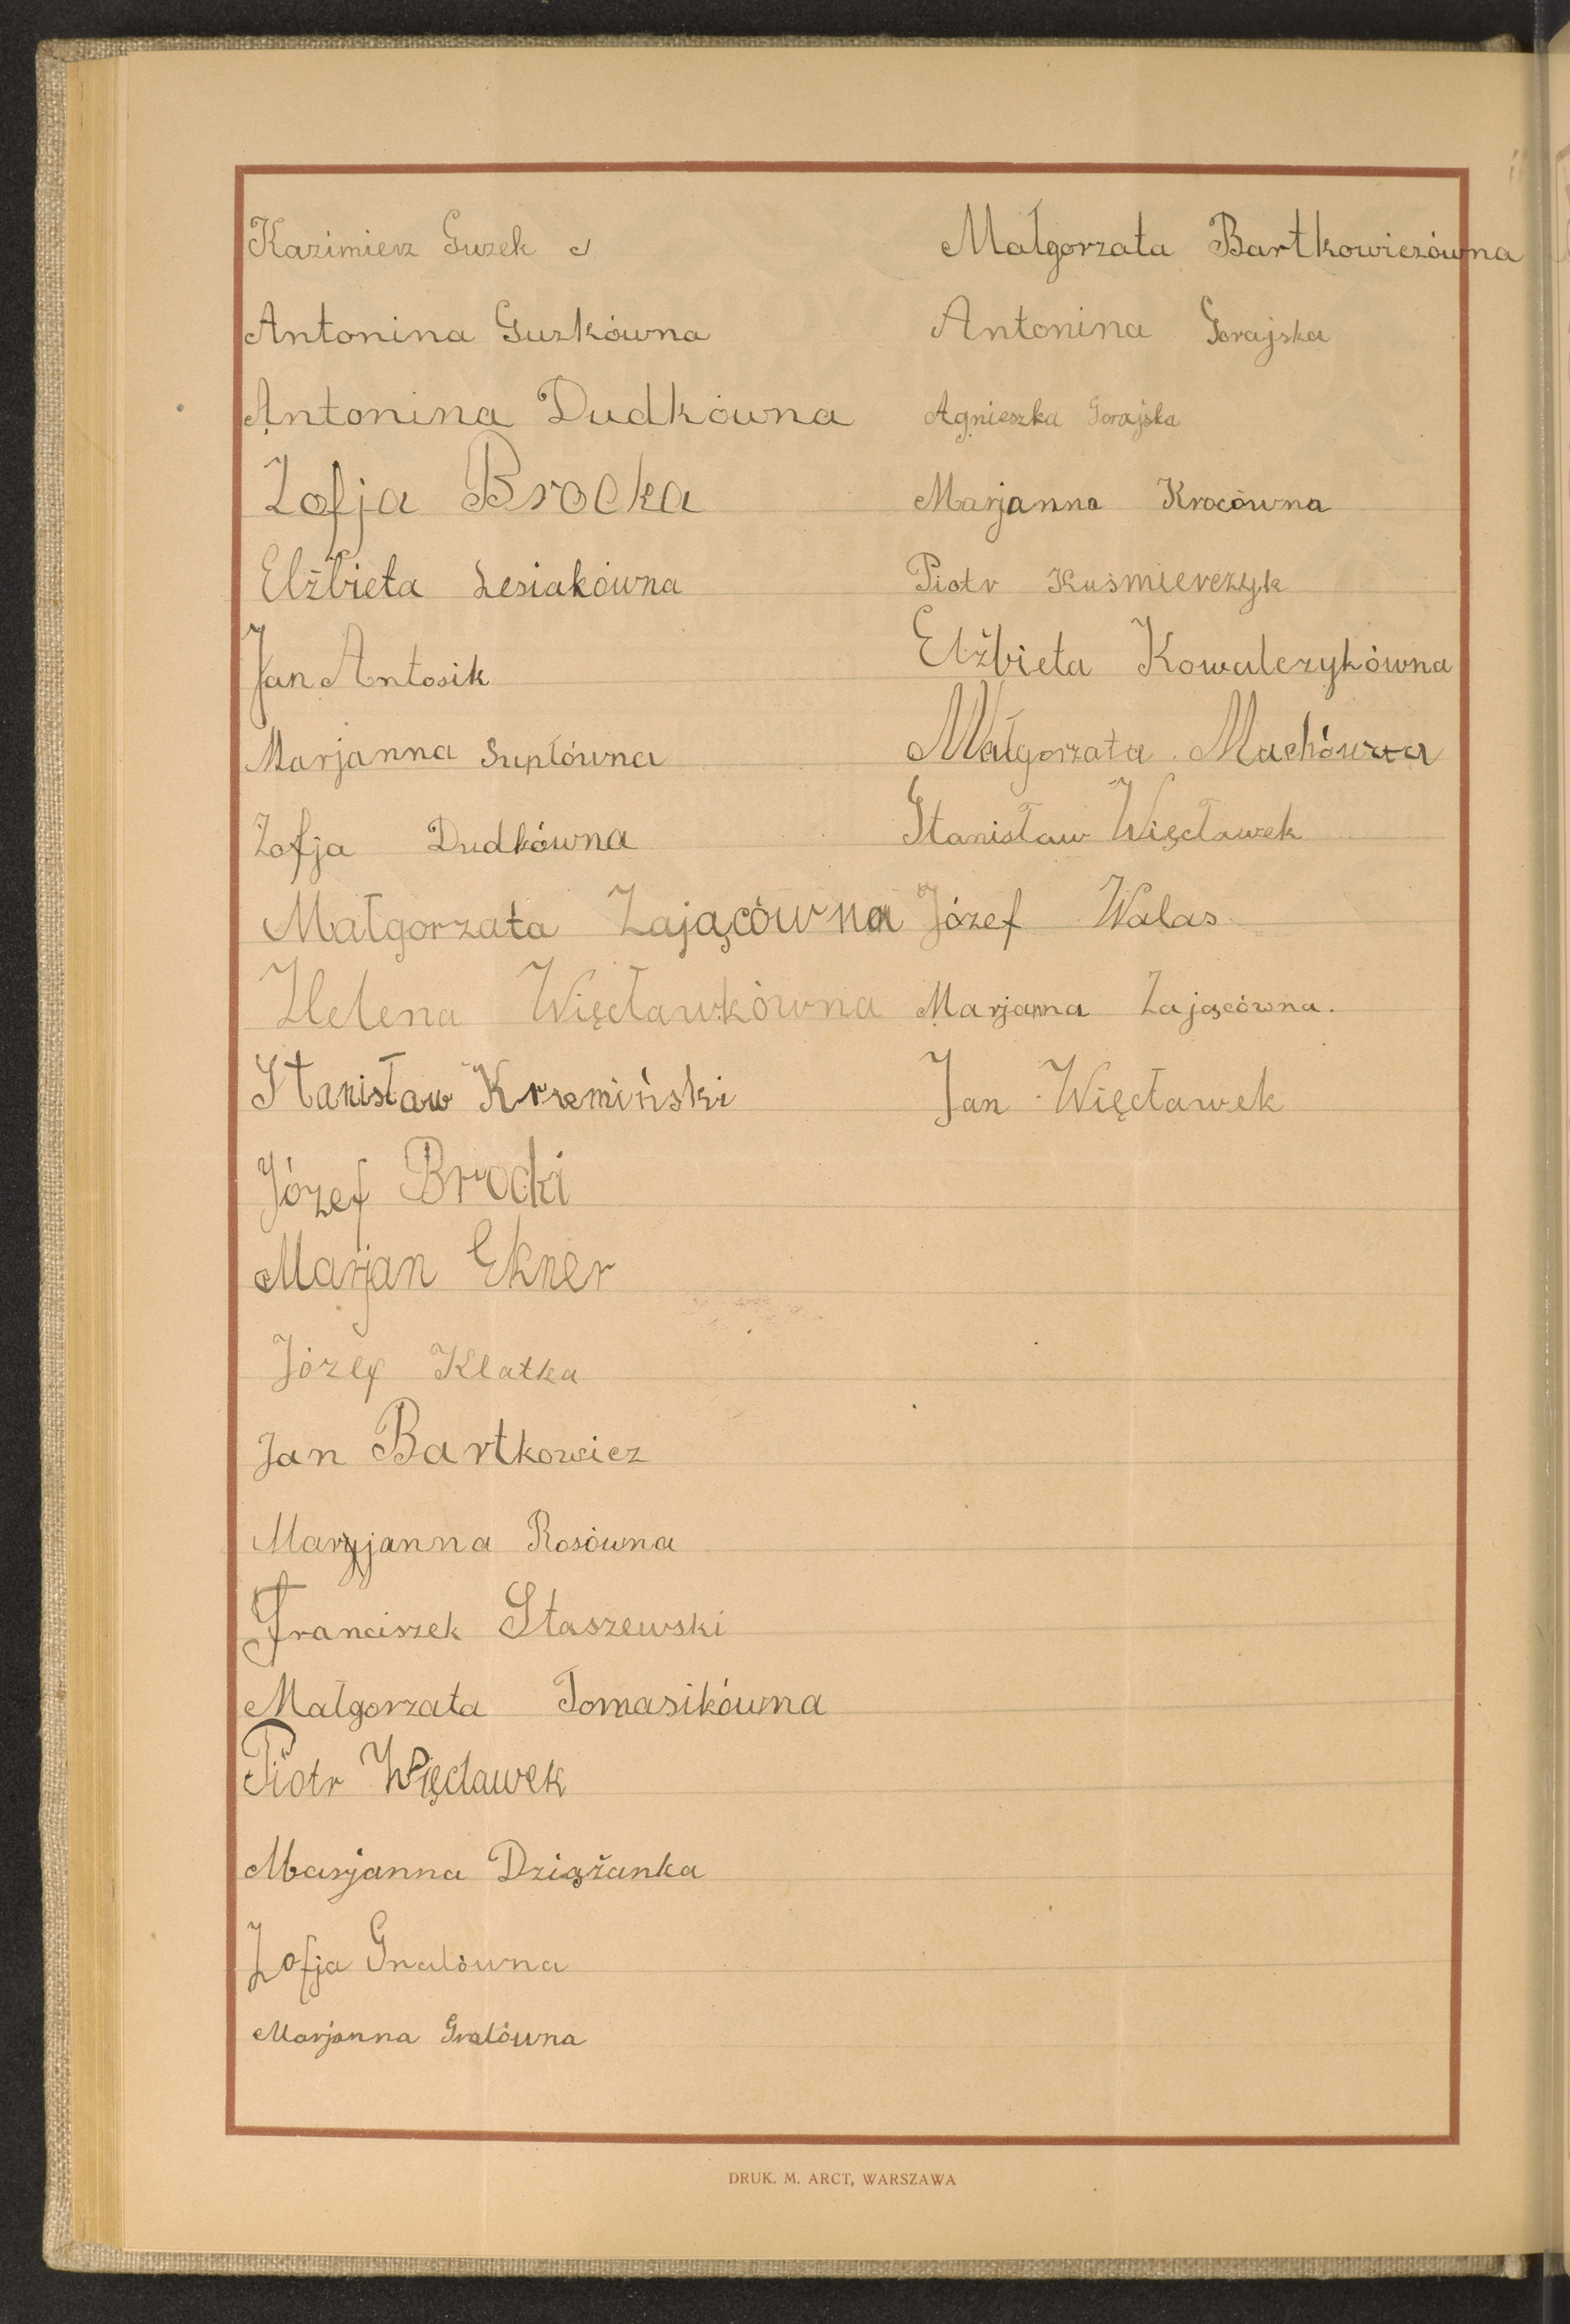 Kazimierz Guzek
Antonina Guzkówna
Antonina Dudkówna
Zofja Brocka
Elżbieta Lesiakówna
Jan Antosik
Marjanna Suptówna
Zofja Dudkówna
Małgorzata Zającówna
Helena Więcławkówna
Stanisław Krzemiński
Józef Brocki
Marjan Ekner
Józef Klatka
Jan Bartkowicz
Maryjanna Rosówna
Franciszek Staszewski
Małgorzata Tomasikówna
Piotr Więcławek
Marjanna Dziążanka
Zofja Gralówna
Marjanna Gralówna
Małgorzata Bartkowiczówna
Antonina Gorajska
Agnieszka Gorajska
Marjanna Krocówna
Piotr Kuśmierczyk
Elżbieta Kowalczykówna
Małgorzata Machówna
Stanisław Więcławek
Józef Walas
Marjanna Zającówna.
Jan Więcławek
DRUK. M. ARCT, WARSZAWA